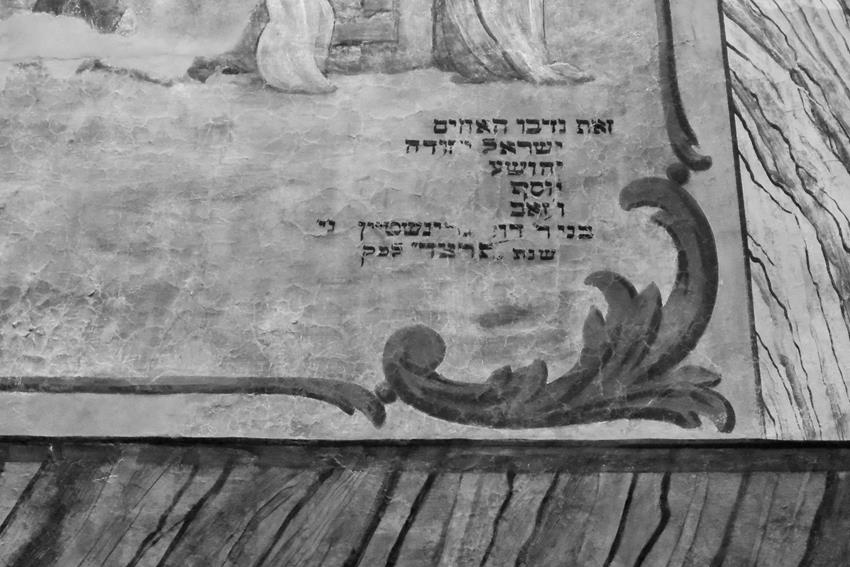 זאת נדבו האחים
ישראל יהודה
יהושע
יוסף
וזאב
בני ר' דוד גרינשטיין ני'
שנת תרצד לפק